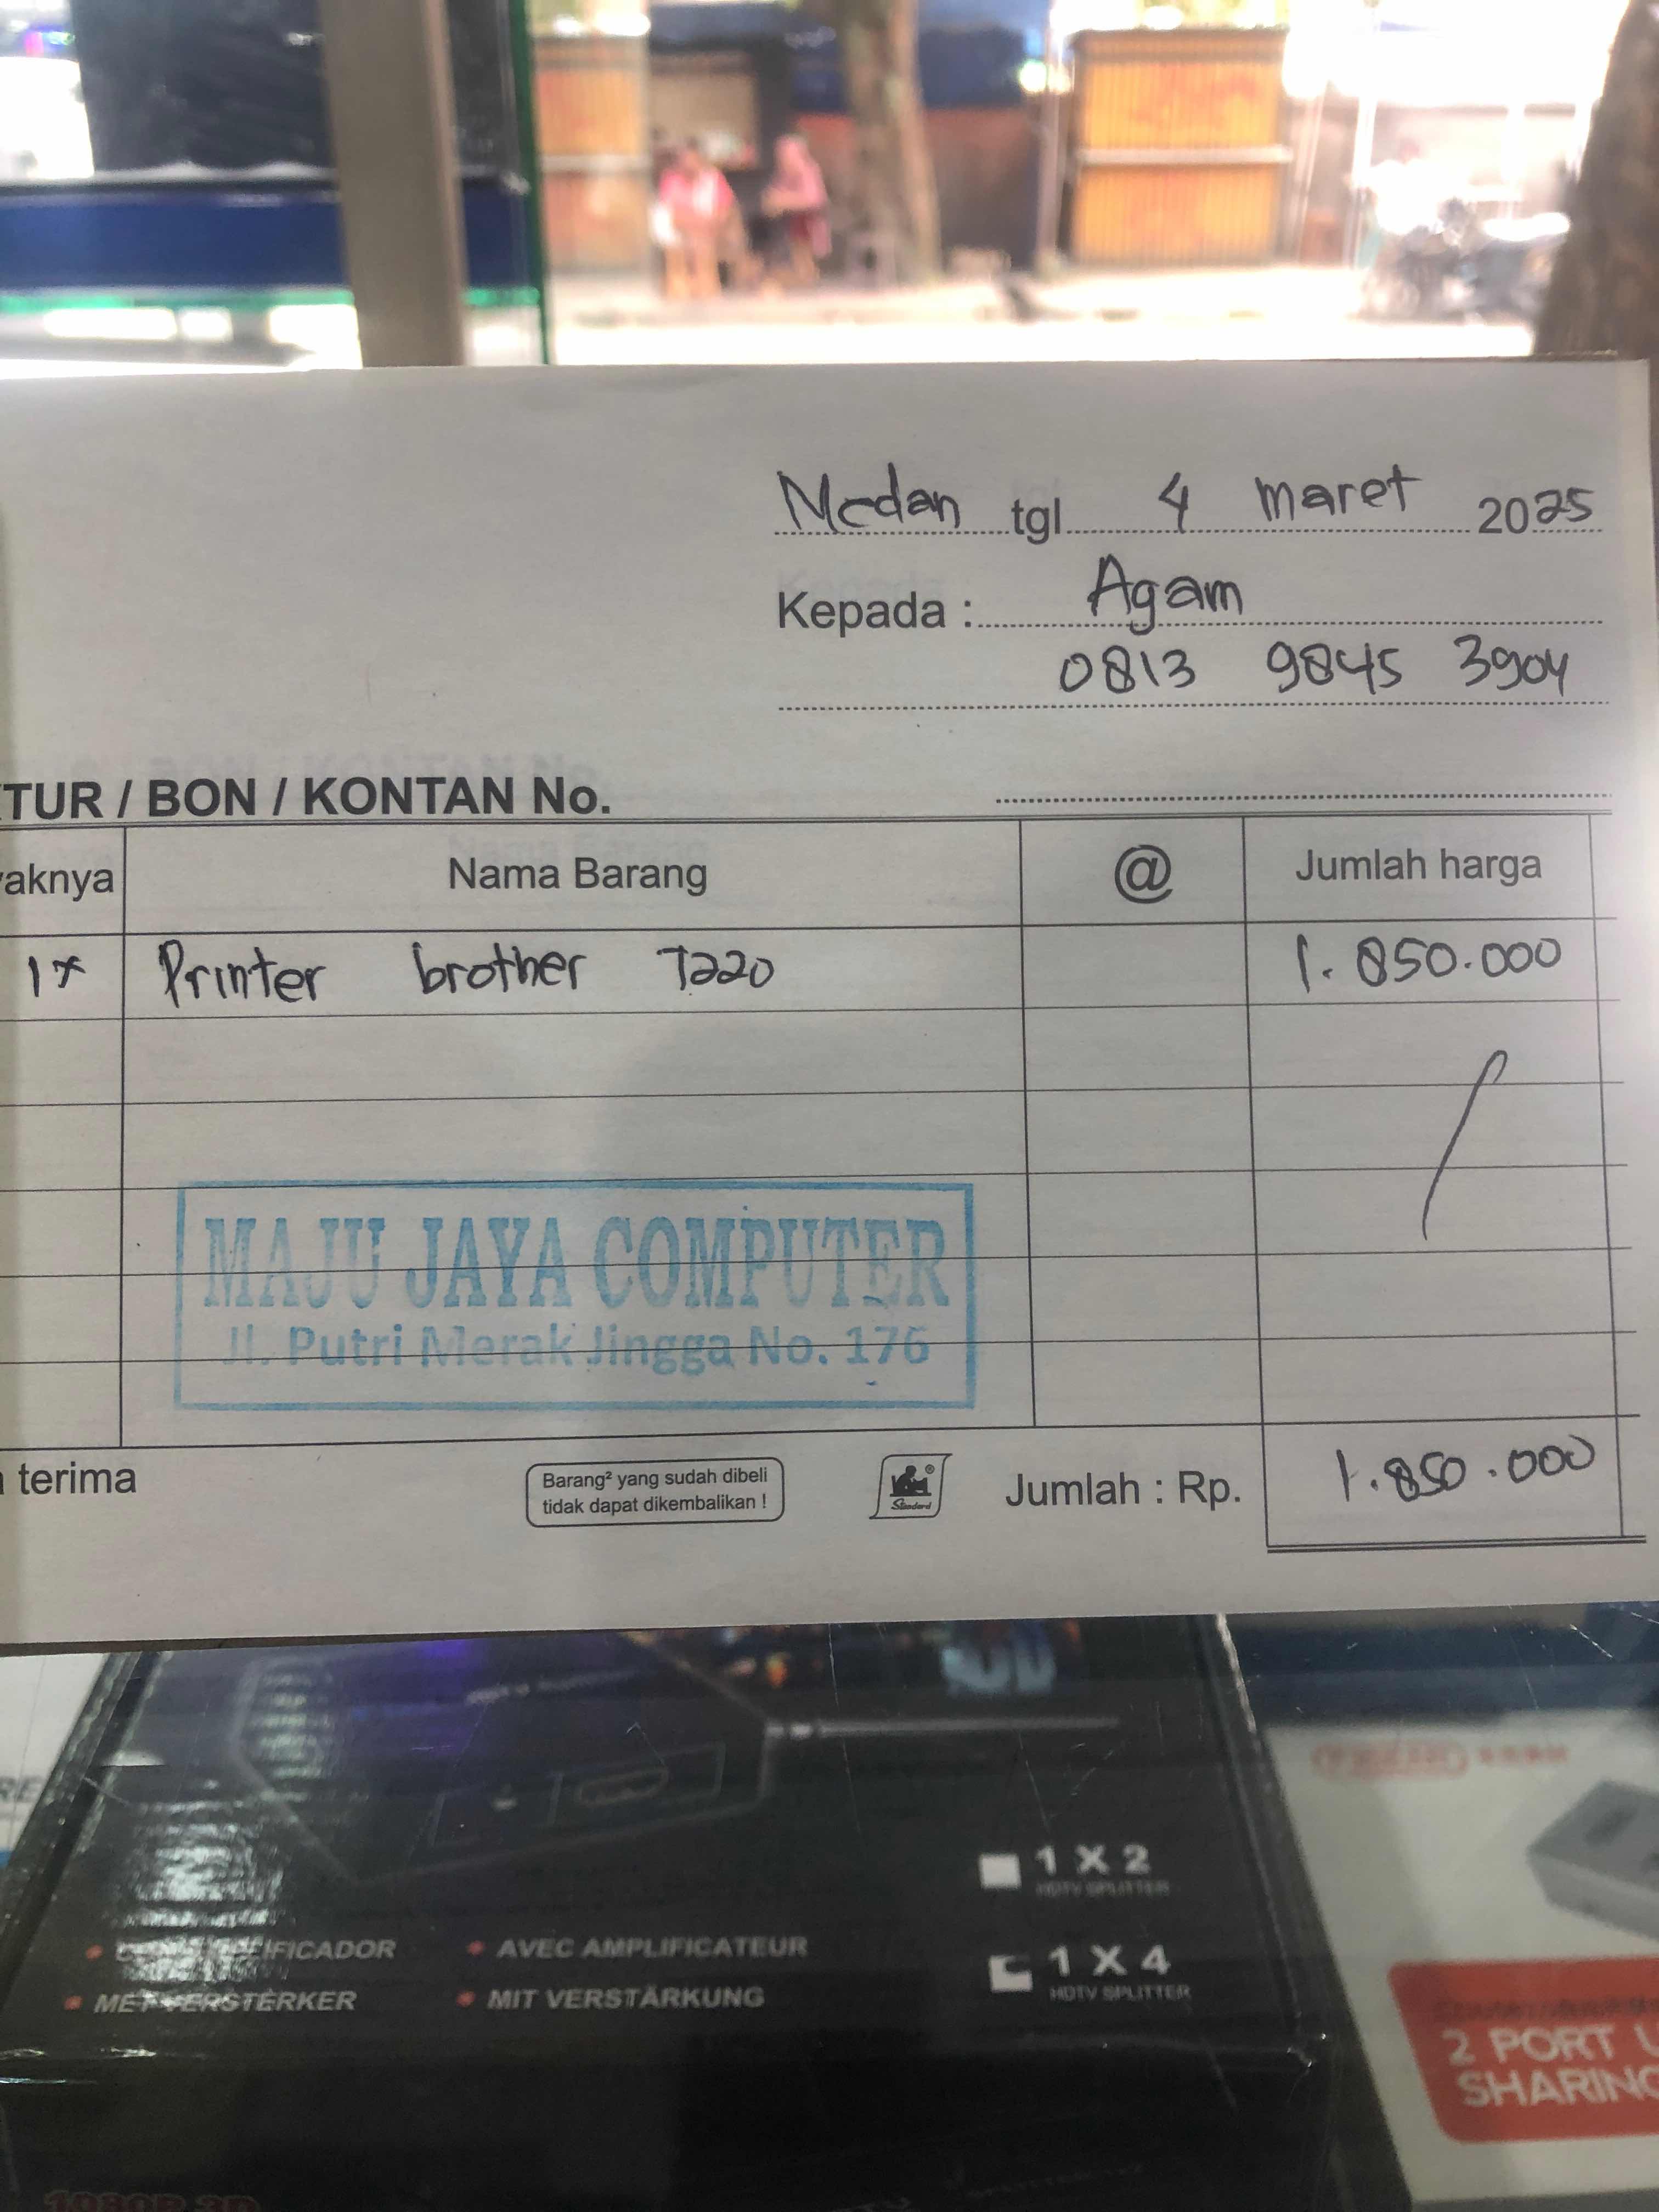 Medan tgl 4 maret 2025
Kepada : Agam
0813 9845 3904
TUR / BON / KONTAN No.
aknya Nama Barang @ Jumlah harga
1x Printer brother T220 1.850.000
MAJU JAYA COMPUTER
Jl. Putri Merak Jingga No. 176
terima
Barang² yang sudah dibeli
tidak dapat dikembalikan !
Standard
Jumlah : Rp. 1.850.000
1 X 2
HDTV SPLITTER
IFICADOR
AVEC AMPLIFICATEUR
1 X 4
HDTV SPLITTER
MET VERSTERKER
MIT VERSTÄRKUNG
2 PORT
SHARING
1080P 3D